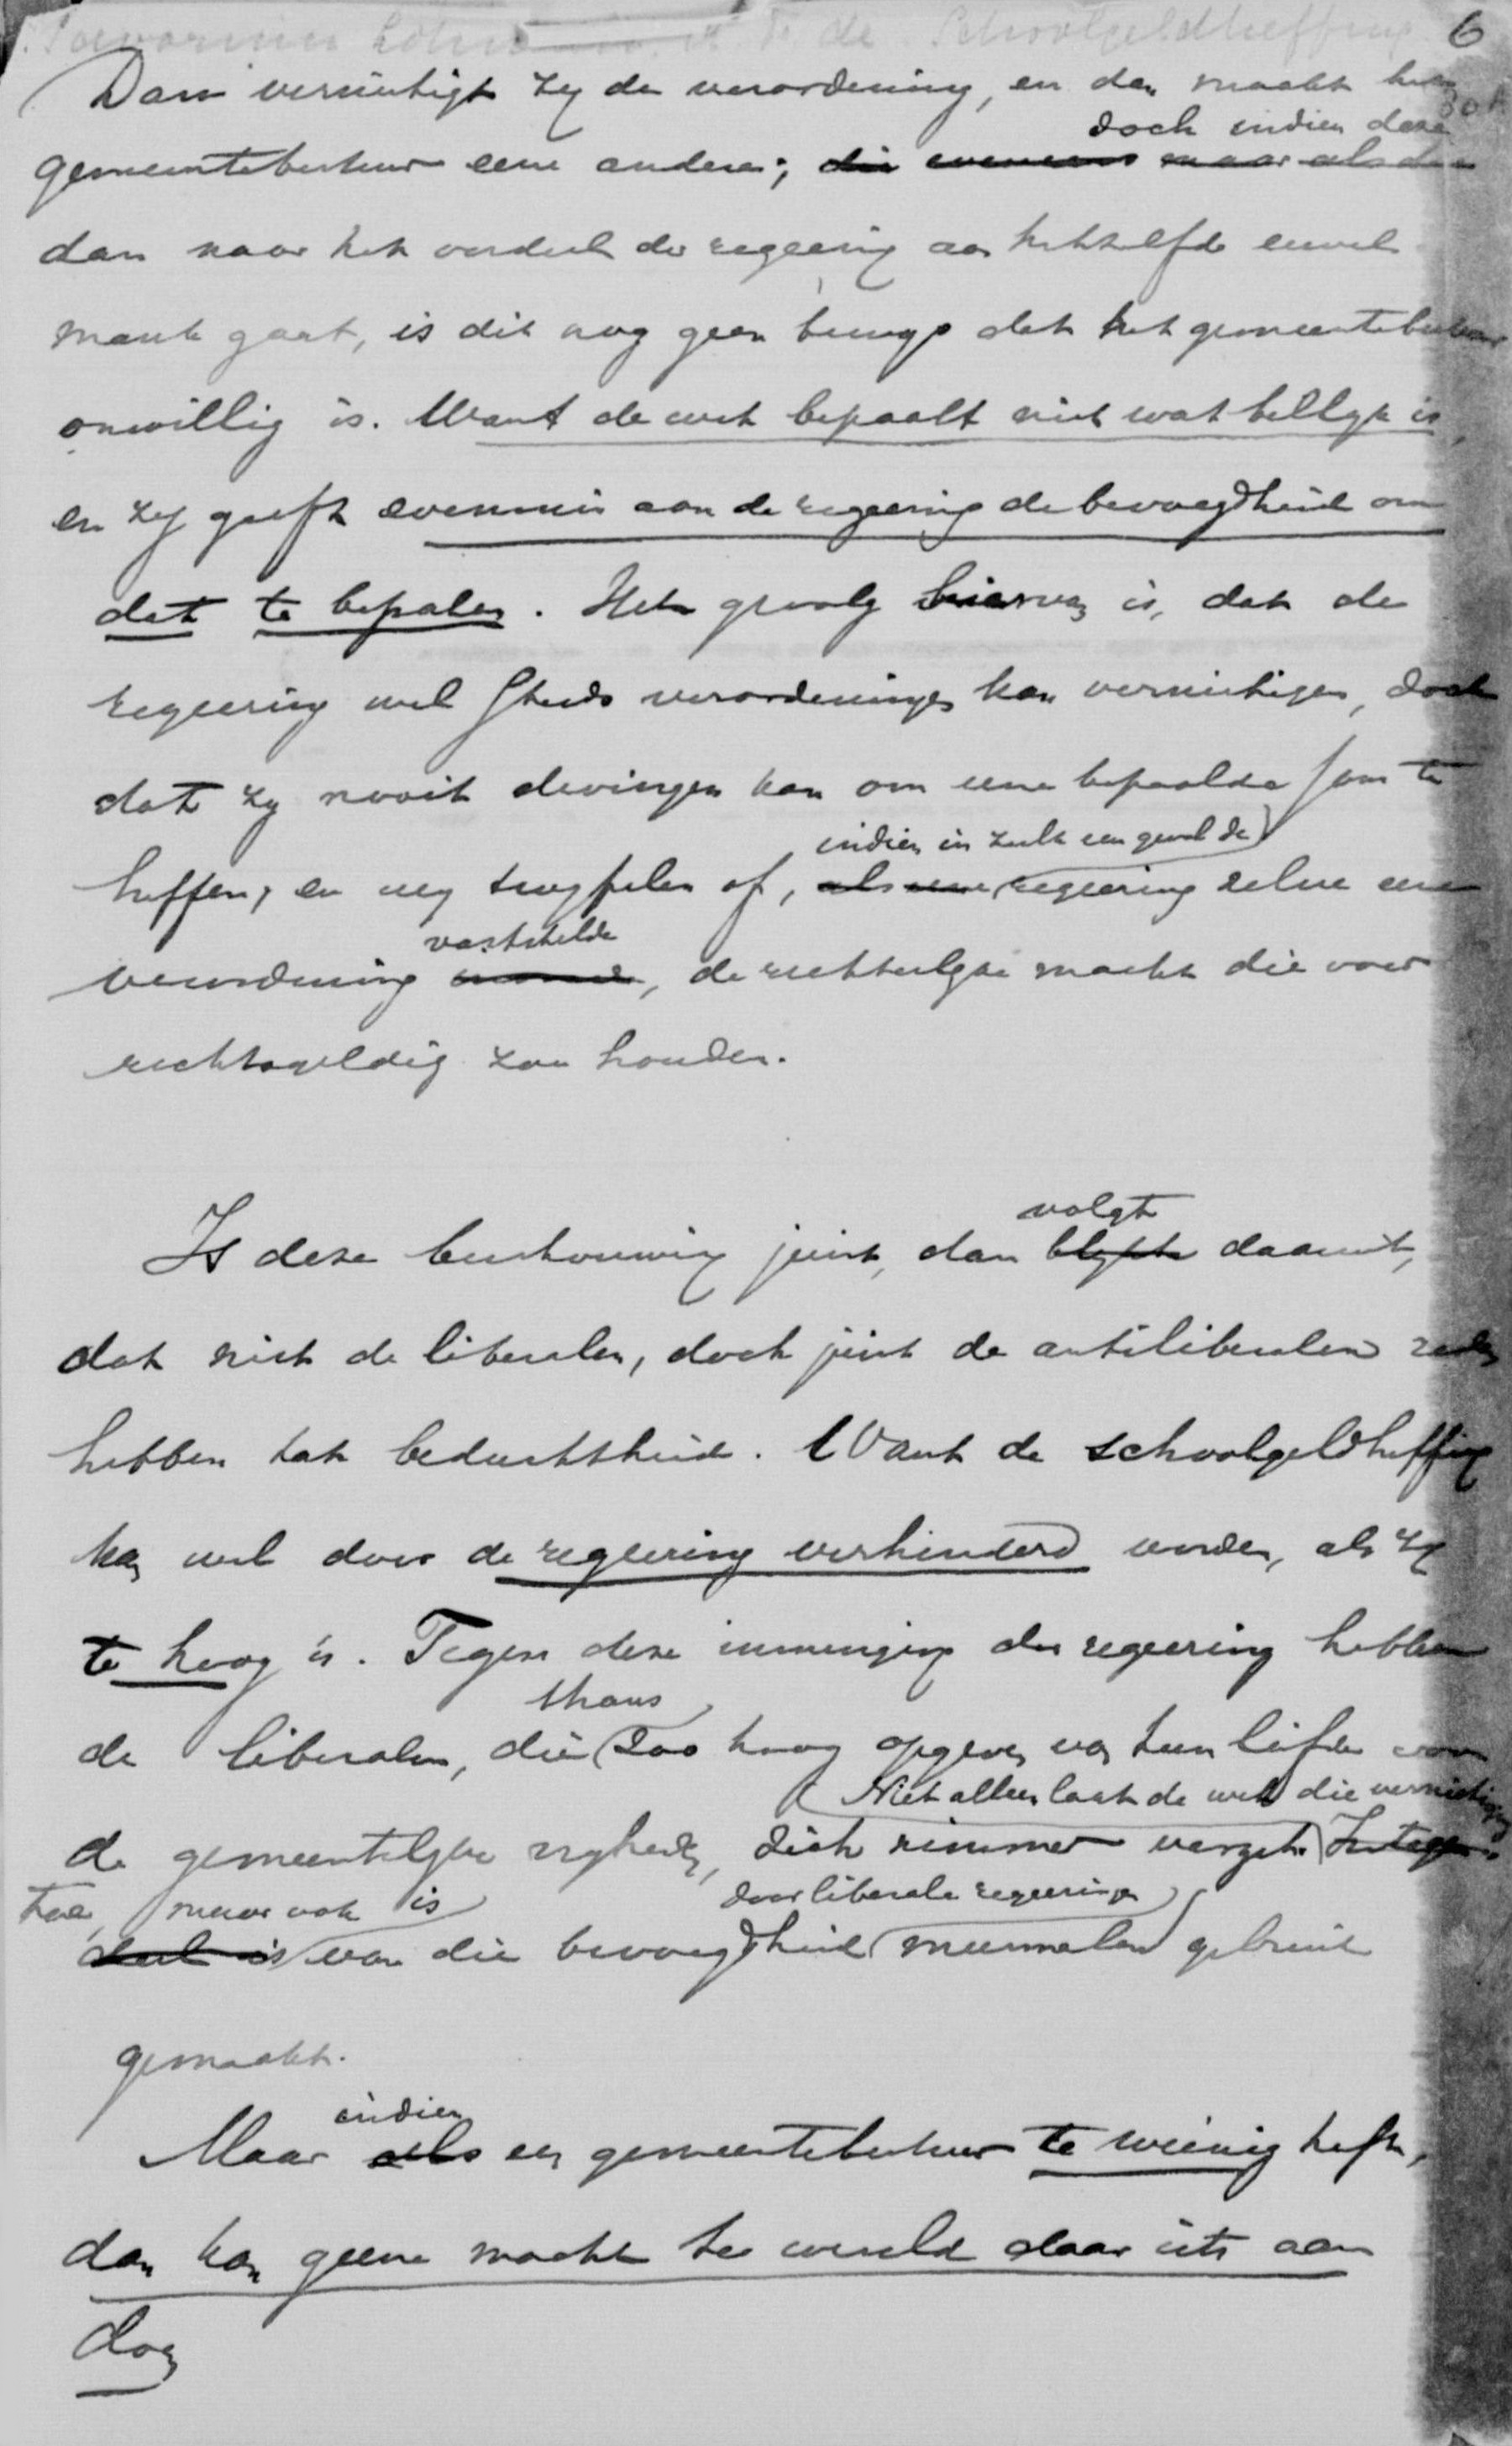 6
de Schoolgeldheffing
Dan vernietigt zij de verordening, en dan maakt het
doch indien deze
gemeentebestuur eene andere; die eveneens maar als deze
dan naar het oordeel der regeering aan hetzelfde euvel
mank gaat, is dit nog geen bewijs dat het gemeentebestuur
onwillig is. Want de wet bepaalt niet wat billijk is,
en zij geeft evenmin aan de regeering de bevoegdheid om
dat te bepalen. Het gevolg hiervan is, dat de
regeering wel steeds verordeningen kan vernietigen, doch
dat zij nooit dwingen kan om eene bepaalde som te
indien in zulk een geval de
heffen, en wij twijfelen of, als eene regeering zelve eene
vaststelde
verordening, de rechterlijke macht die voor
rechtsgeldig zou houden.
volgt
Is deze beschouwing juist, dan blijkt daaruit,
dat niet de liberalen, doch juist de antiliberalen reden
hebben tot beduchtheid. Want de schoolgeldheffing
kan wel door de regeering verhinderd worden, als zij
te hoog is. Tegen deze inmenging der regeering hebben
thans
de liberalen, die zoo hoog opgeven van hun liefde voor
Niet alleen laat de wet die vernietiging
de gemeentelijke vrijheid, zich nimmer verzet. Integen-
toe, maar ook is door liberale regeeringen
deel is van die bevoegdheid meermalen gebruik
gemaakt.
indien
Maar als een gemeentebestuur te weinig heft,
dan kan geene macht ter wereld daar iets aan
doen